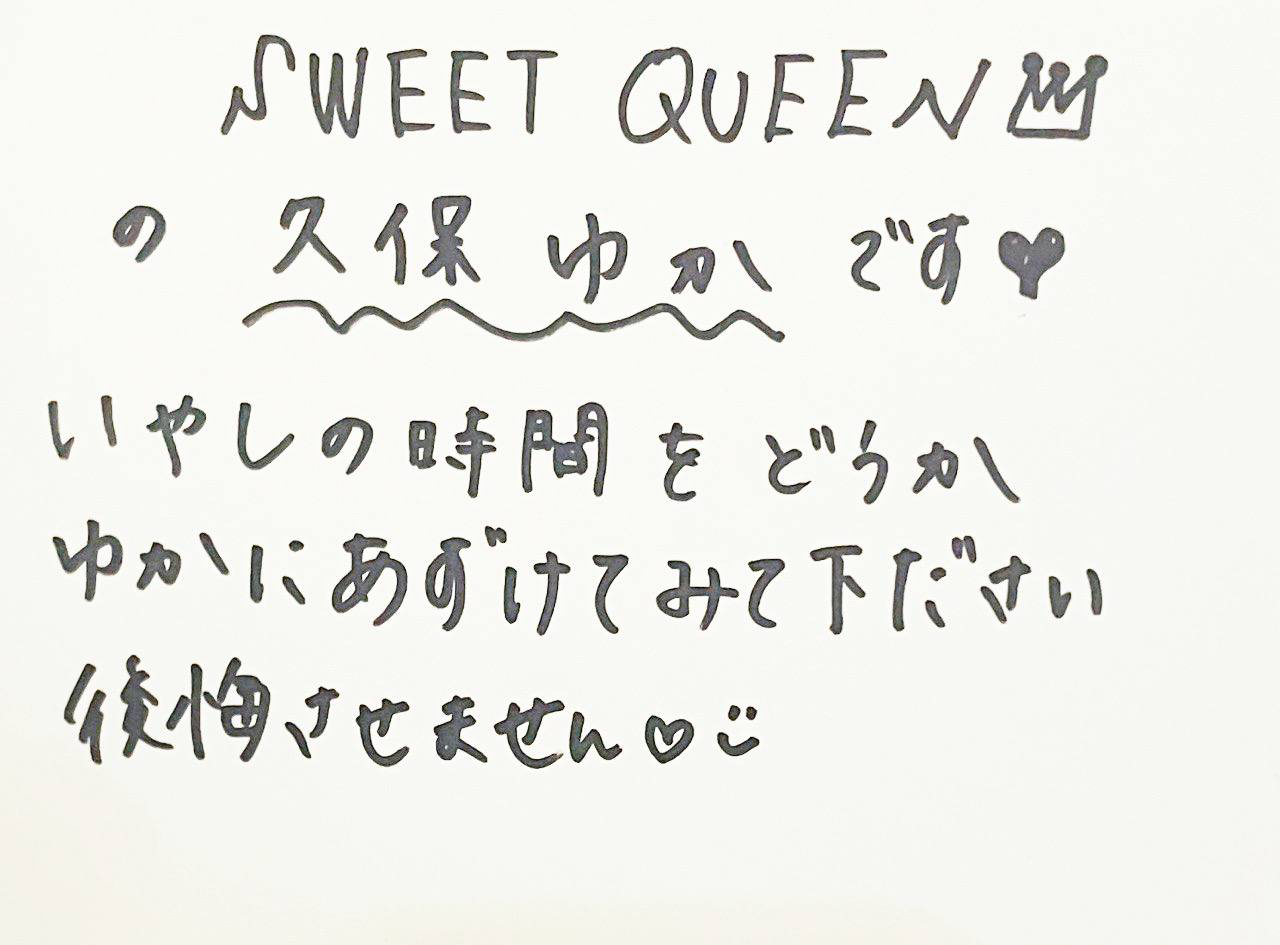 SWEET QUEEN
の 久保 ゆか です♥
いやしの時間をどうか
ゆかにあずけてみて下ださい
後悔させません♡